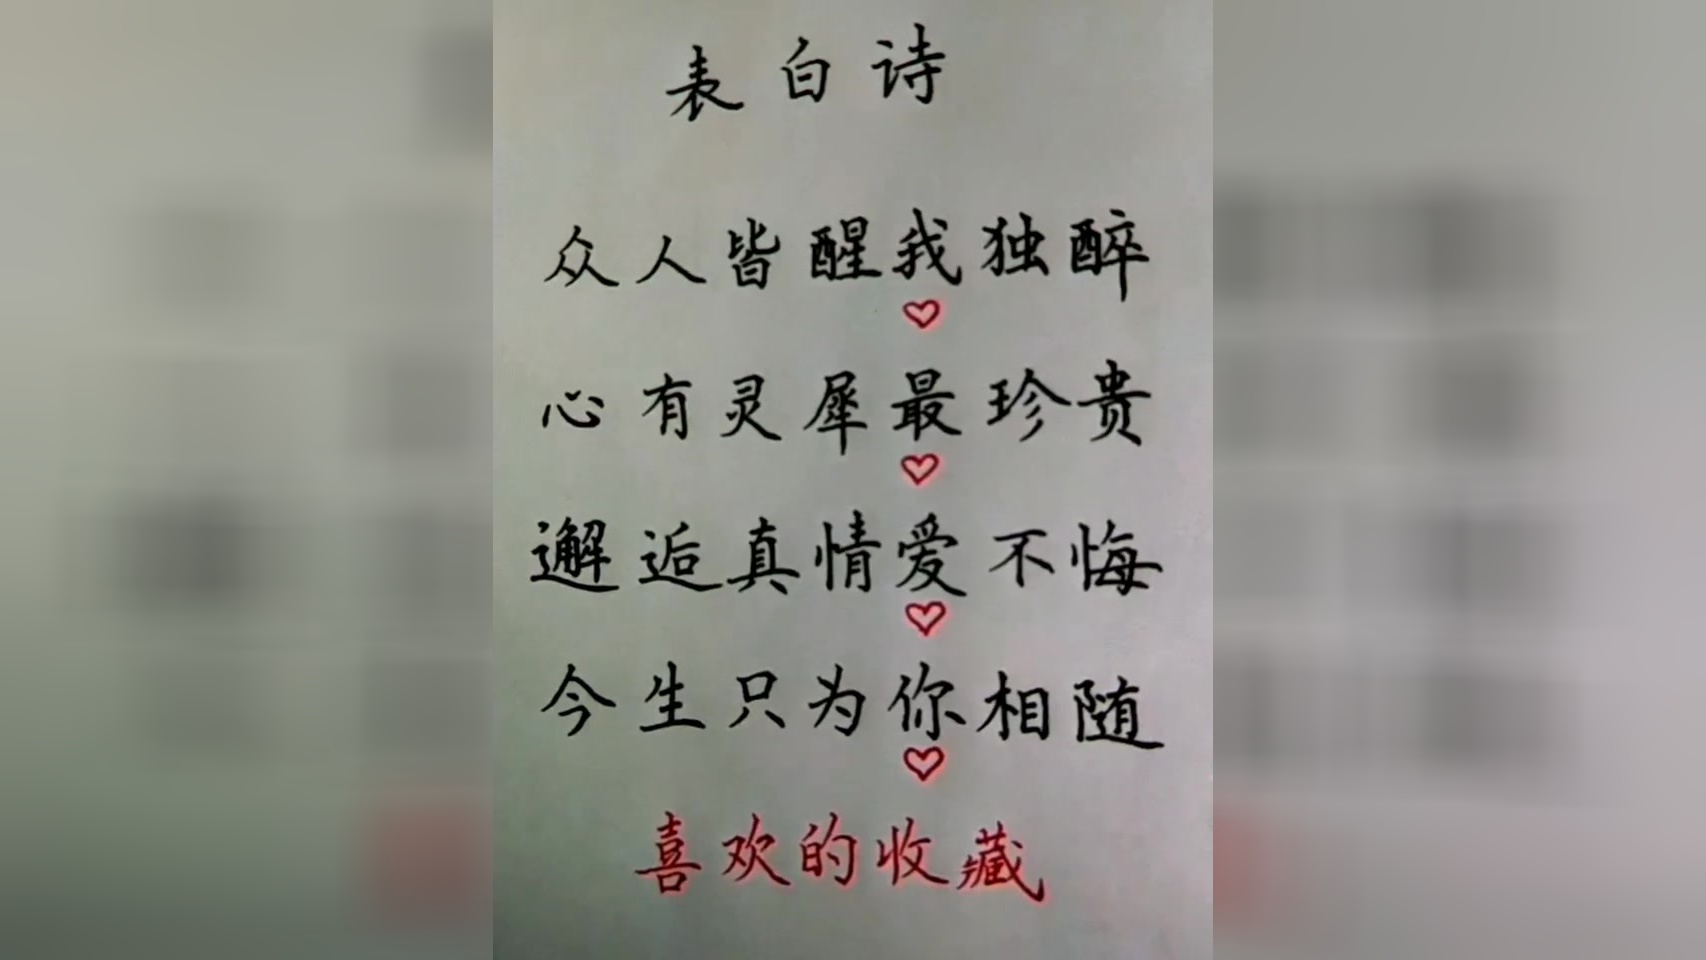 表白诗
众人皆醒我独醉
心有灵犀最珍贵
邂逅真情爱不悔
今生只为你相随
喜欢的收藏